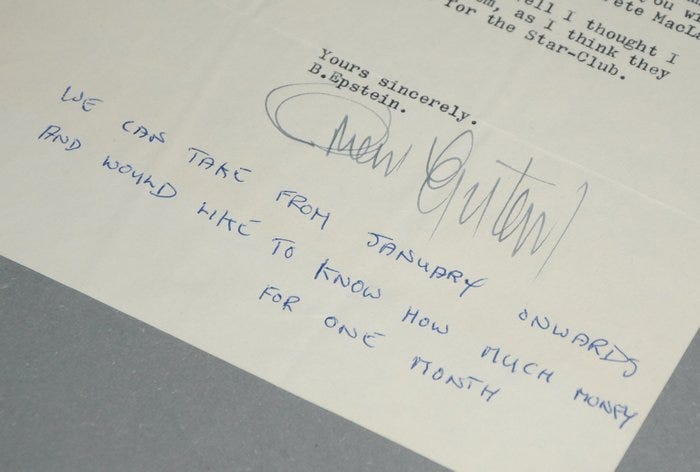 you
ete MacLa
ell I thought I
m, as I think they
for the Star-Club.
Yours sincerely.
B.Epstein.
WE CAN TAKE FROM JANUARY ONWARDS
AND WOULD LIKE TO KNOW HOW MUCH MONEY
FOR ONE MONTH